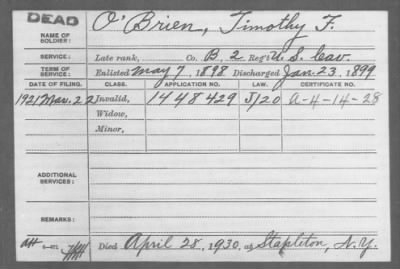 DEAD
NAME OF SOLDIER: O'Brien, Timothy F.
SERVICE: Late rank, Co. B, 2 Reg't U. S. Cav.
TERM OF SERVICE: Enlisted May 7, 1898 Discharged Jan. 23, 1899
DATE OF FILING. CLASS. APPLICATION NO. LAW. CERTIFICATE NO.
1921 Mar. 22 Invalid, 1448429 J/20 A-4-14-28
Widow,
Minor,
ADDITIONAL SERVICES:
REMARKS:
Died April 28, 1930, at Stapleton, N.Y.